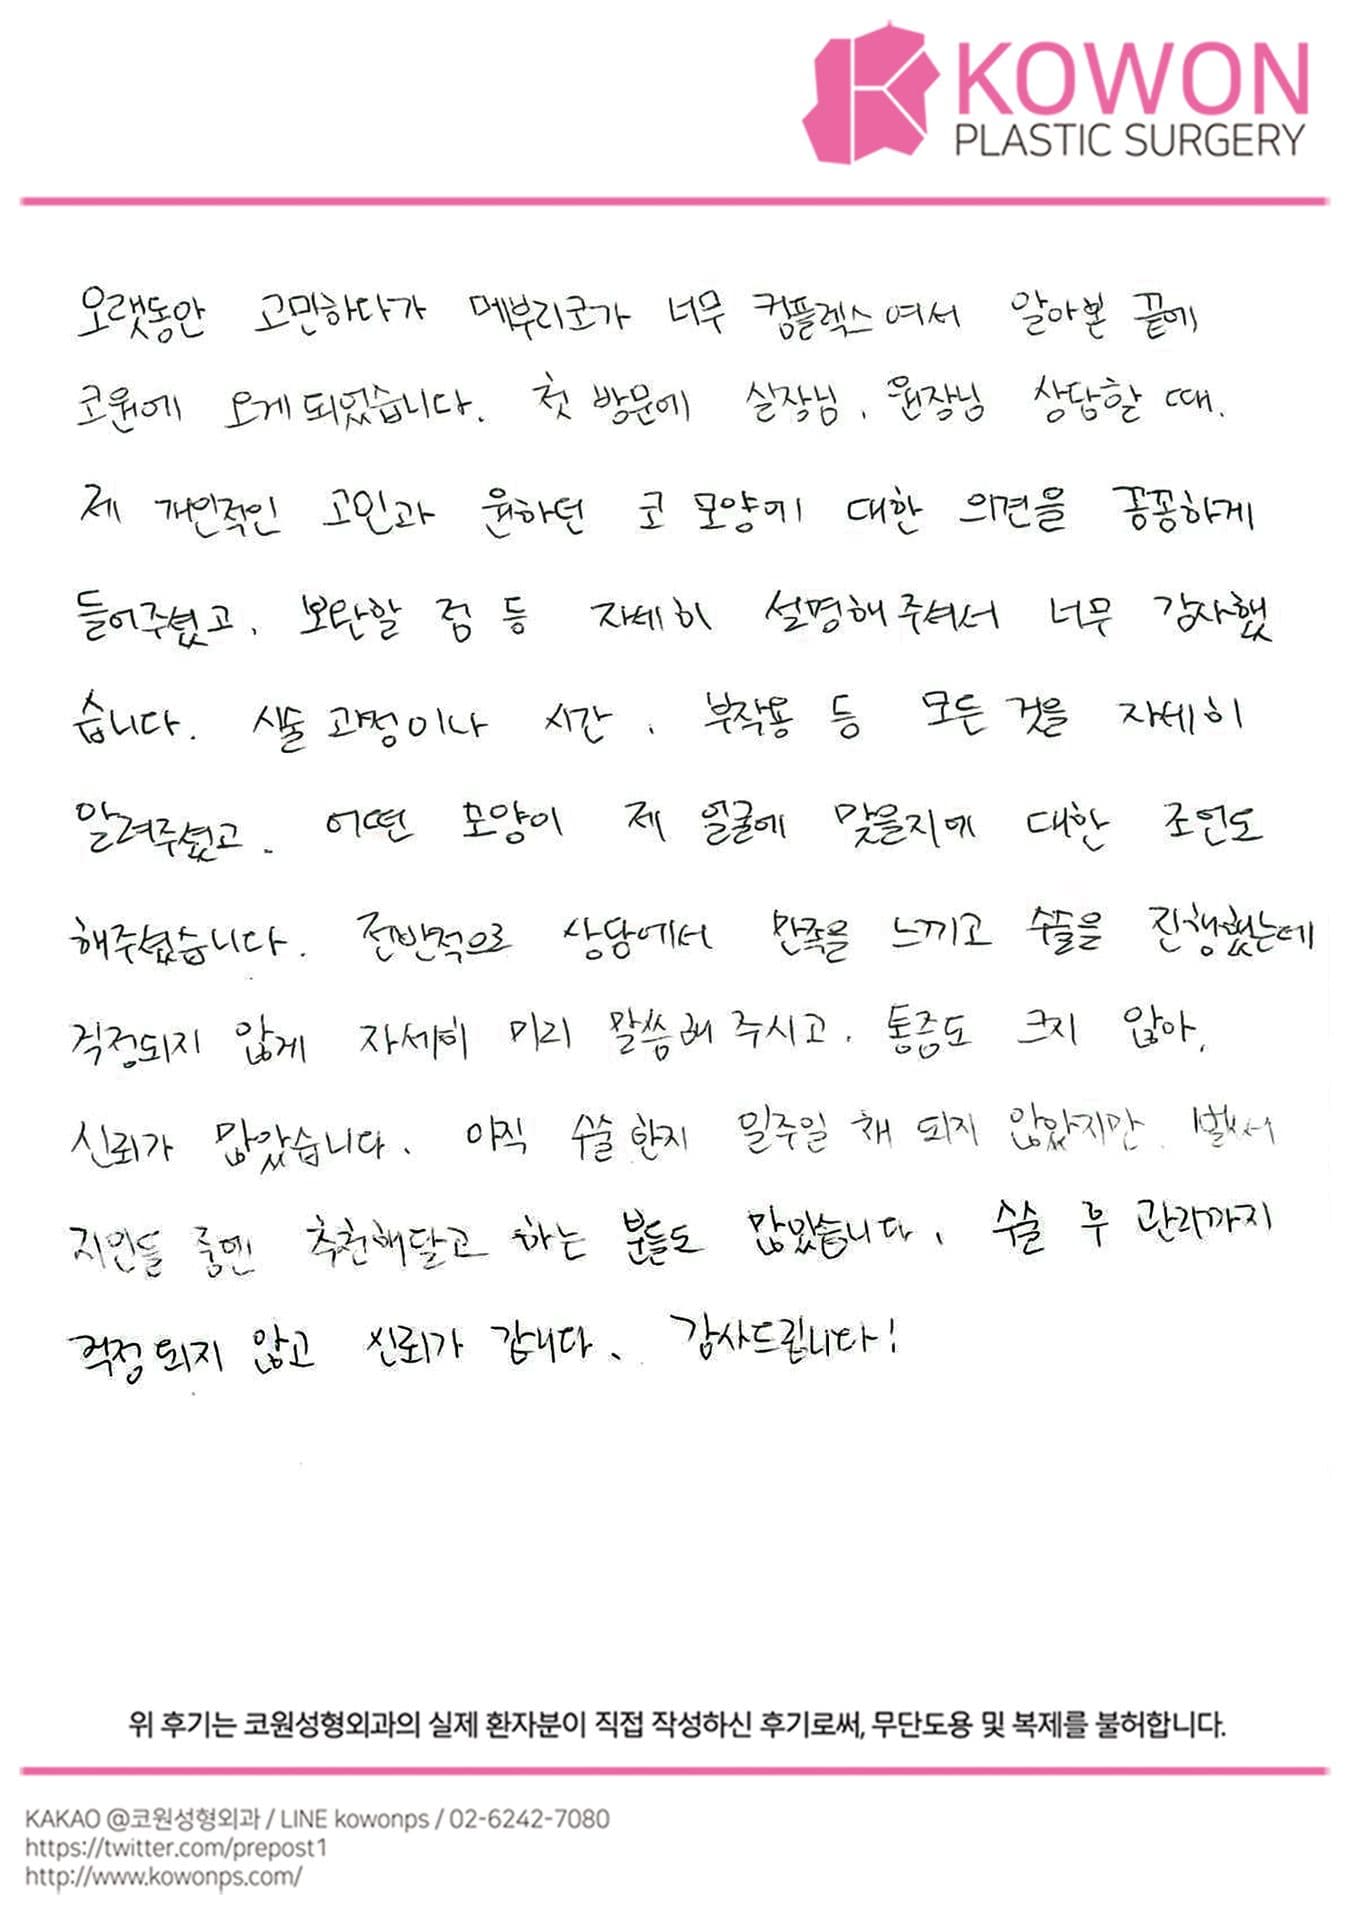 KOWON
PLASTIC SURGERY
오랫동안 고민하다가 메부리코가 너무 컴플렉스여서 알아본 끝에
코원에 오게되었습니다. 첫 방문에 실장님, 원장님 상담할 때,
제 개인적인 고민과 원하던 코 모양에 대한 의견을 꼼꼼하게
들어주셨고, 보완할 점 등 자세히 설명해주셔서 너무 감사했
습니다. 시술 과정이나 시간, 부작용 등 모든 것을 자세히
알려주셨고, 어떤 모양이 제 얼굴에 맞을지에 대한 조언도
해주셨습니다. 전반적으로 상담에서 만족을 느끼고 수술을 진행했는데
걱정되지 않게 자세히 미리 말씀해 주시고, 통증도 크지 않아,
신뢰가 많았습니다. 아직 수술한지 일주일 채 되지 않았지만, 벌써
지인들 중엔 추천해달고 하는 분들도 많았습니다. 수술 후 관리까지
걱정되지 않고 신뢰가 갑니다. 감사드립니다!
위 후기는 코원성형외과의 실제 환자분이 직접 작성하신 후기로써, 무단도용 및 복제를 불허합니다.
KAKAO @코원성형외과 / LINE kowonps / 02-6242-7080
https://twitter.com/prepost1
http://www.kowonps.com/